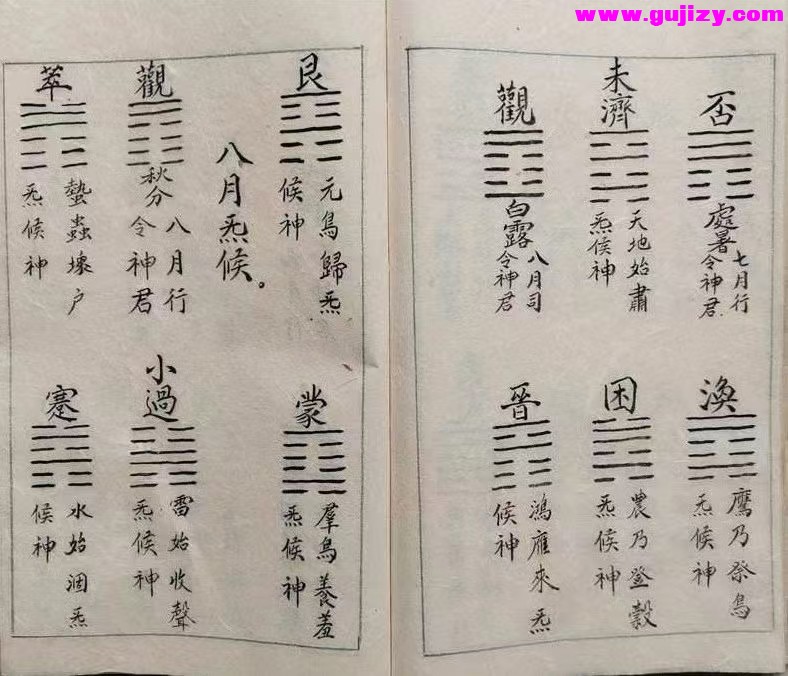 www.gujizy.com
否
處暑
七月行
令神君
渙
鷹乃祭鳥
炁候神
未濟
天地始肅
炁候神
困
農乃登穀
炁候神
觀
白露
八月司
令神君
晉
鴻雁來炁
候神
艮
元鳥歸炁
候神
蒙
羣鳥養羞
炁候神
八月炁候。
觀
秋分
八月行
令神君
小過
雷始收聲
炁候神
萃
蟄蟲壞户
炁候神
蹇
水始涸炁
候神